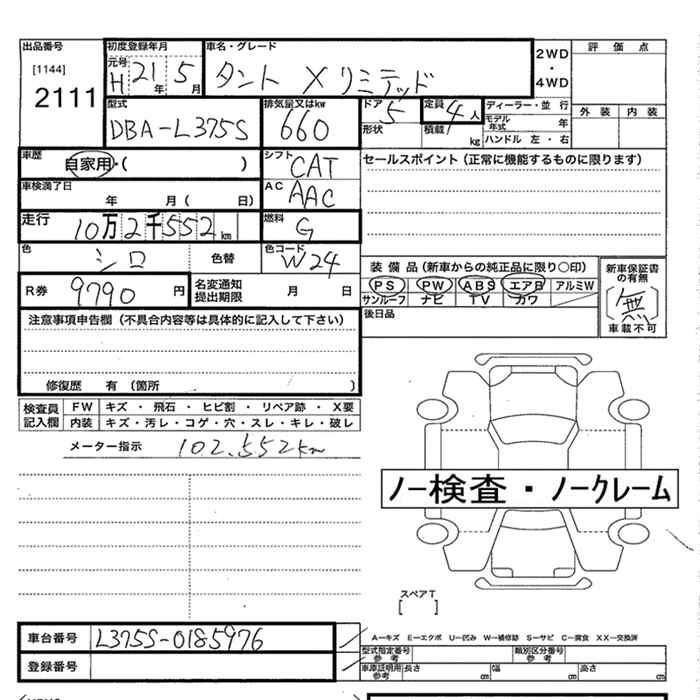 出品番号 初度登録年月 車名・グレード 2WD・4WD 評価点
[1144] 元号 H 21年 5月 タント Xリミテッド
2111 型式 排気量又はkw ドア 定員 ディーラー・並行 外装 内装
DBA-L375S 660 5 4人 モデル年式 年
形状 積載 kg ハンドル 左・右
車歴 自家用・( ) シフト CAT セールスポイント(正常に機能するものに限ります)
車検満了日 年 月( 日) AC AAC
走行 10万2千552km 燃料 G
色 シロ 色替 色コード W24 装備品(新車からの純正品に限り〇印) 新車保証書の有無
R券 9790円 名変通知提出期限 月 日 PS PW ABS エアB アルミW (無)
サンルーフ ナビ TV カワ 車載不可
注意事項申告欄(不具合内容等は具体的に記入して下さい) 後日品
修復歴 有(箇所 )
検査員記入欄 FW キズ・飛石・ヒビ割・リペア跡・X要
内装 キズ・汚レ・コゲ・穴・スレ・キレ・破レ
メーター指示 102.552km
ノー検査・ノークレーム
スペアT
[ ]
車台番号 L375S-0185976 A―キズ E―エクボ U―凹み W―補修跡 S―サビ C―腐食 XX―交換済
登録番号 型式指定番号 参考 類別区分番号 参考
車庫証明用 参考 長さ cm 幅 cm 高さ cm